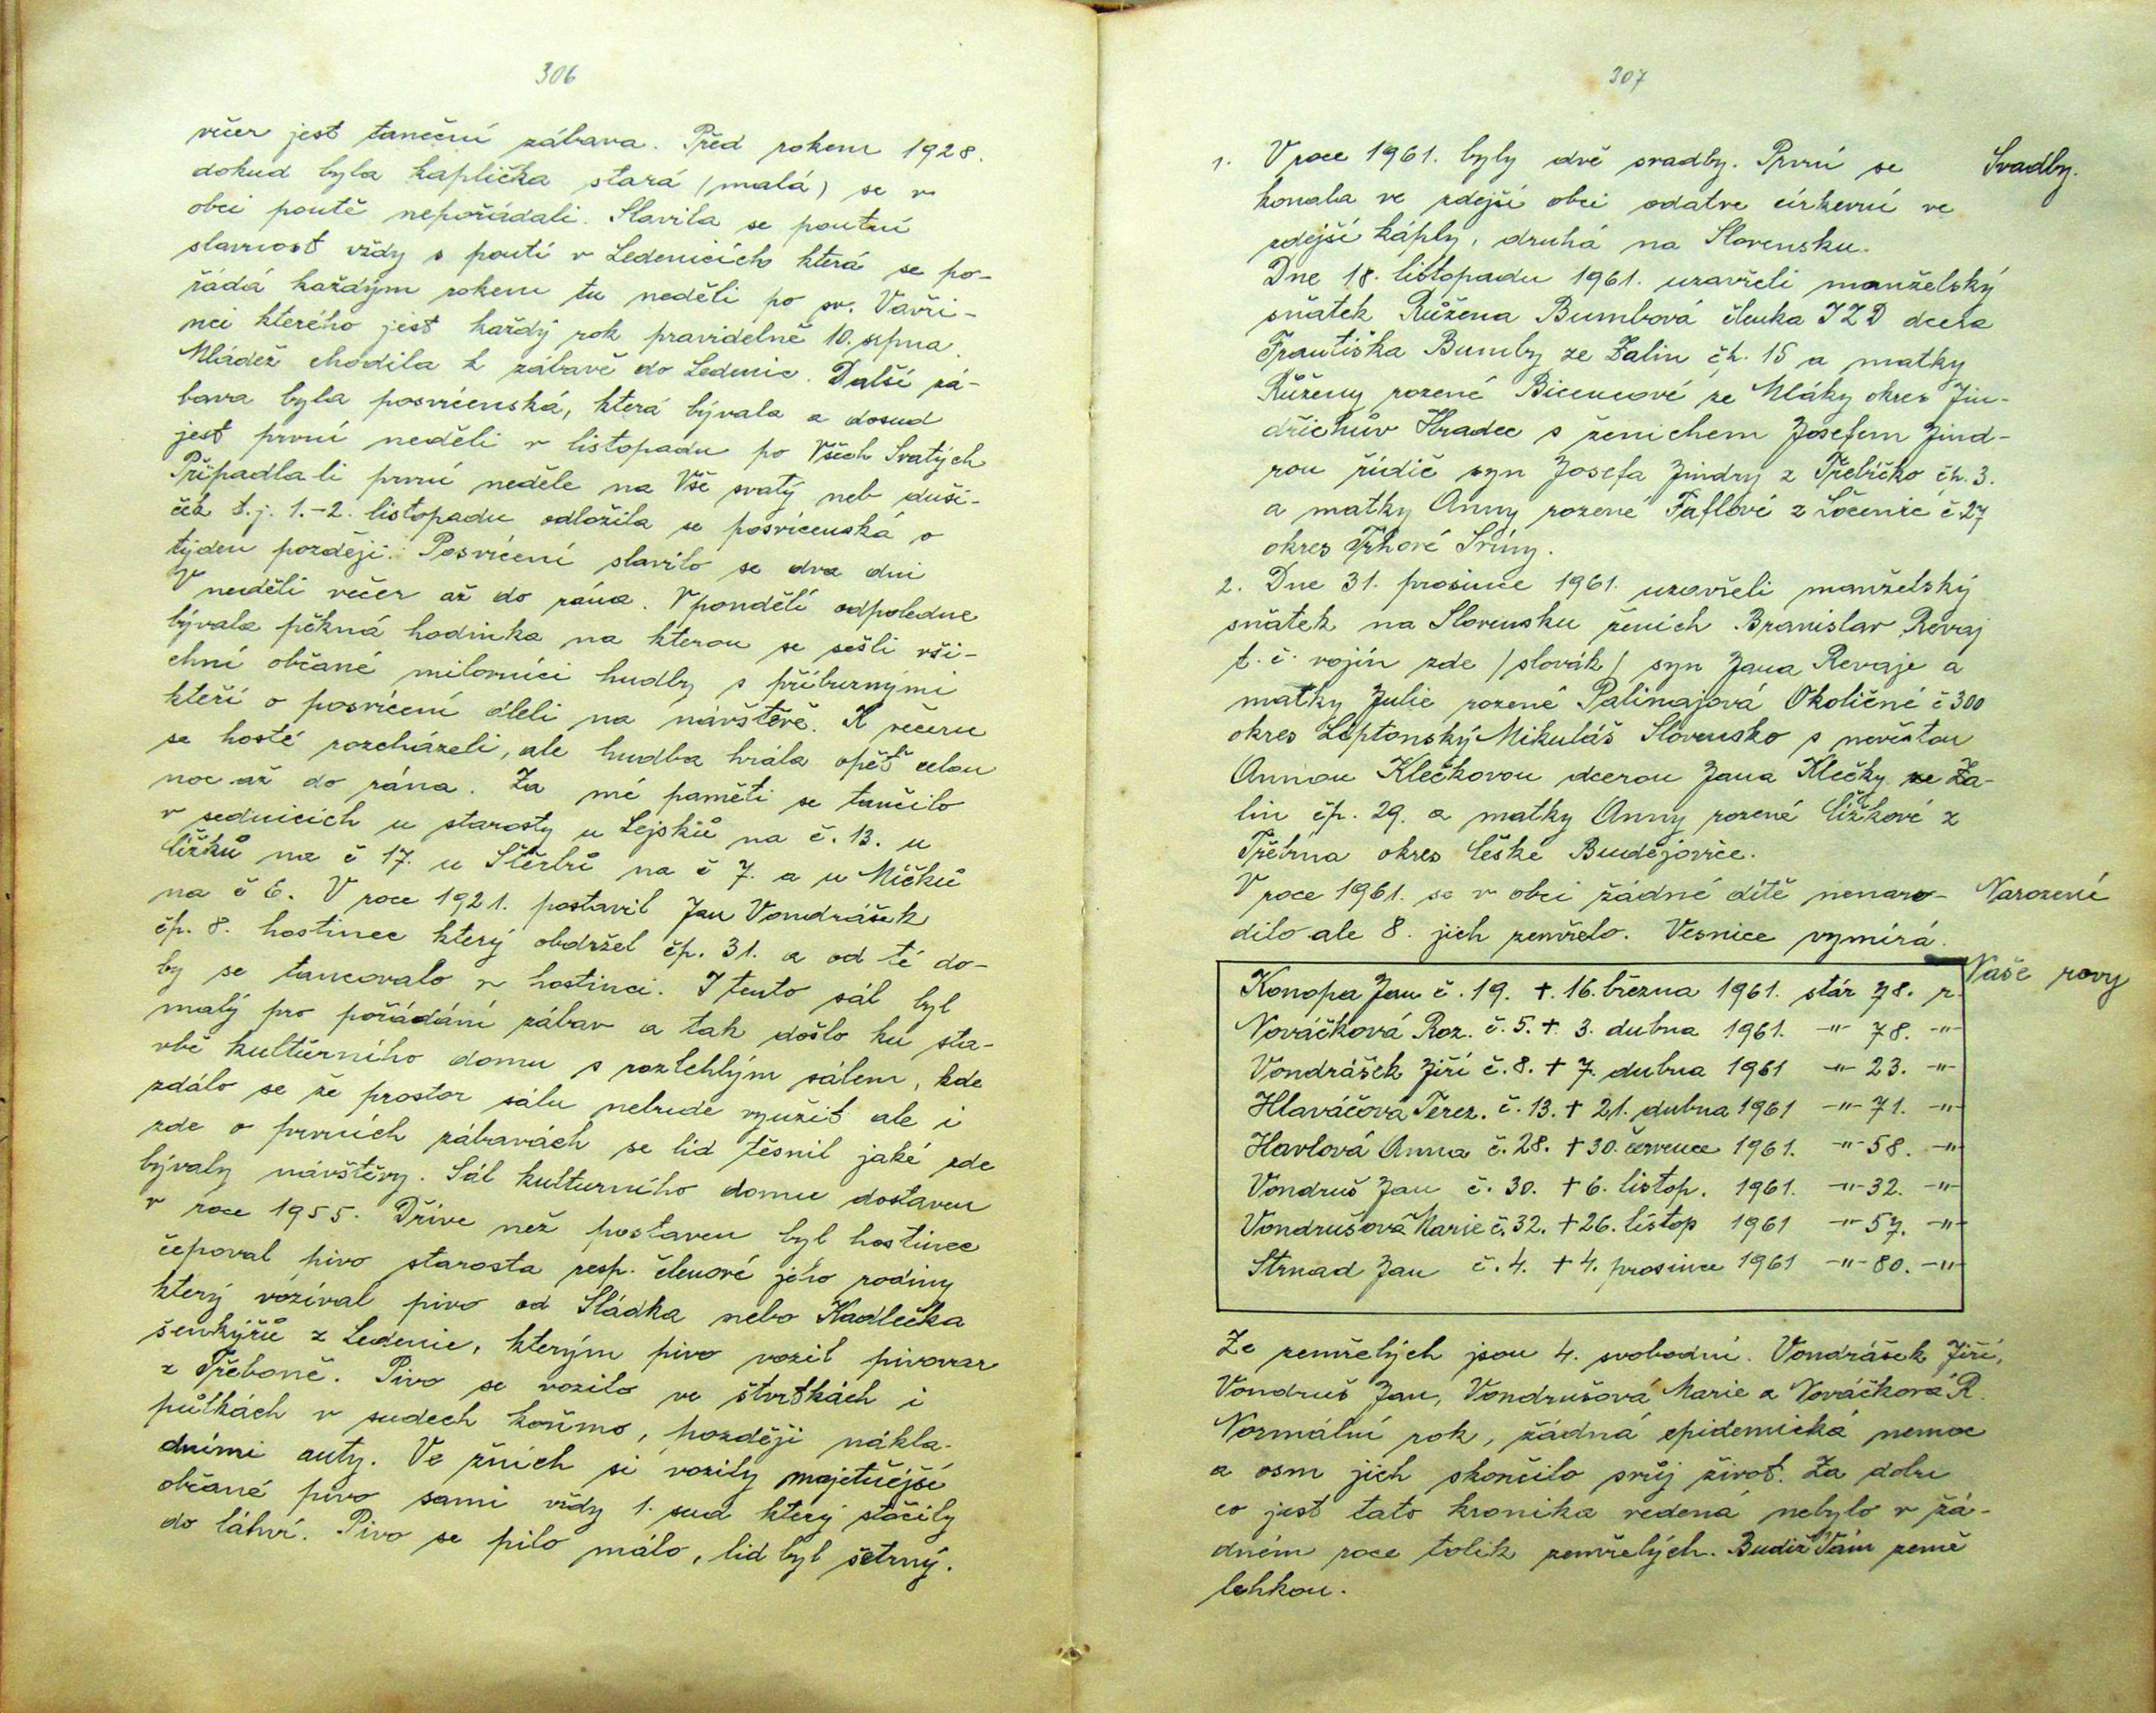 306
večer jest taneční zábava. Před rokem 1928.
dokud byla kaplička stará (malá) se v
obci poutě nepořádali. Slavila se poutní
slavnost vždy s poutí v Ledenicích která se po-
řádá každým rokem tu neděli po sv. Vavři-
nci kterého jest každý rok pravidelně 10. srpna.
Mládež chodila k zábavě do Ledenic. Další zá-
bava byla posvícenská, která bývala a dosud
jest první neděli v listopadu po Všech Svatých
Připadla-li první neděle na Vše svatý neb duši-
ček t.j. 1.-2. listopadu odložila se posvícenská o
týden později. Posvícení slavilo se dva dni
V neděli večer až do rána. V pondělí odpoledne
bývala pěkná hodinka na kterou se sešli vši-
chni občané milovníci hudby s příbuznými
kteří o posvícení dleli na návštěvě. K večeru
se hosté rozcházeli, ale hudba hrála opět celou
noc až do rána. Za mé paměti se tančilo
v sednicích u starosty u Lejsků na č. 13. u
Čížků na č 17. u Štěrbů na č 7. a u Mičků
na č 6. V roce 1921. postavil Jan Vondrášek
čp. 8. hostinec který obdržel čp. 31. a od té do-
by se tancovalo v hostinci. I tento sál byl
malý pro pořádání zábav a tak došlo ku sta-
vbě kultůrního domu s rozlehlým sálem, kde
zdálo se že prostor sálu nebude využit ale i
zde o prvních zábavách se lid těsnil jaké zde
bývaly návštěvy. Sál kulturního domu dostaven
v roce 1955. Dříve než postaven byl hostinec
čepoval pivo starosta resp. členové jeho rodiny
který vozíval pivo od Sládka nebo Kadlečka
šenkýřů z Ledenic, kterým pivo vozil pivovar
z Třeboně. Pivo se vozilo ve štvrtkách i
půlkách v sudech koňmo, později nákla-
dními auty. Ve žních si vozily majetnějsí
občané pivo sami vždy 1. sud který stáčily
do láhví. Pivo se pilo málo, lid byl šetrný.
307
1. V roce 1961. byly dvě svadby. První se
Svadby.
konala ve zdejší obci odatve církevní ve
zdejší káply, druhá na Slovensku.
Dne 18. listopadu 1961. uzavřeli manželský
sňatek Růžena Bumbová členka JZD dcera
Františka Bumby ze Zalin čh. 15 a matky
Růženy rozené Bicencové ze Mláky okres Jin-
dřichův Hradec s ženichem Josefem Jind-
rou řidič syn Josefa Jindry z Třebíčko čh. 3.
a matky Anny rozené Faflové z Ločenic č 27
okres Trhové Sviny.
2. Dne 31. prosince 1961. uzavřeli manželský
sňatek na Slovensku ženich Branislav Revaj
t. č. vojín zde (slovák) syn Jana Revaje a
matky Julie rozené Palimajová Okoličné č 300
okres Liptonský Mikuláš Slovensko s nevěstou
Annou Klečkovou dcerou Jana Klečky ze Za-
lin čp. 29. a matky Anny rozené Čížkové z
Třebína okres České Budějovice.
V roce 1961. se v obci žádné dítě nenaro-
Narození
dilo ale 8. jich zemřelo. Vesnice vymírá.
Naše rovy
Konopa Jan č. 19. †. 16. března 1961. stár 78. r.
Nováčková Roz. č. 5. †. 3. dubna 1961. -"- 78. -"-
Vondrášek Jiří č. 8. † 7. dubna 1961 -"- 23. -"-
Hlaváčová Terez. č. 13. † 21. dubna 1961 -"- 71. -"-
Havlová Anna č. 28. † 30. července 1961. -"- 58. -"-
Vondruš Jan č. 30. † 6. listop. 1961. -"- 32. -"-
Vondrušová Marie č. 32. † 26. listop 1961 -"- 57. -"-
Strnad Jan č. 4. † 4. prosince 1961 -"- 80. -"-
Ze zemřelých jsou 4. svobodní. Vondrášek Jiří,
Vondruš Jan, Vondrušová Marie a Nováčková R.
Normální rok, žádná epidemická nemoc
a osm jich skončilo svůj život. Za dobu
co jest tato kronika vedená nebylo v žá-
dném roce tolik zemřelých. Budiž Vám země
lehkou.